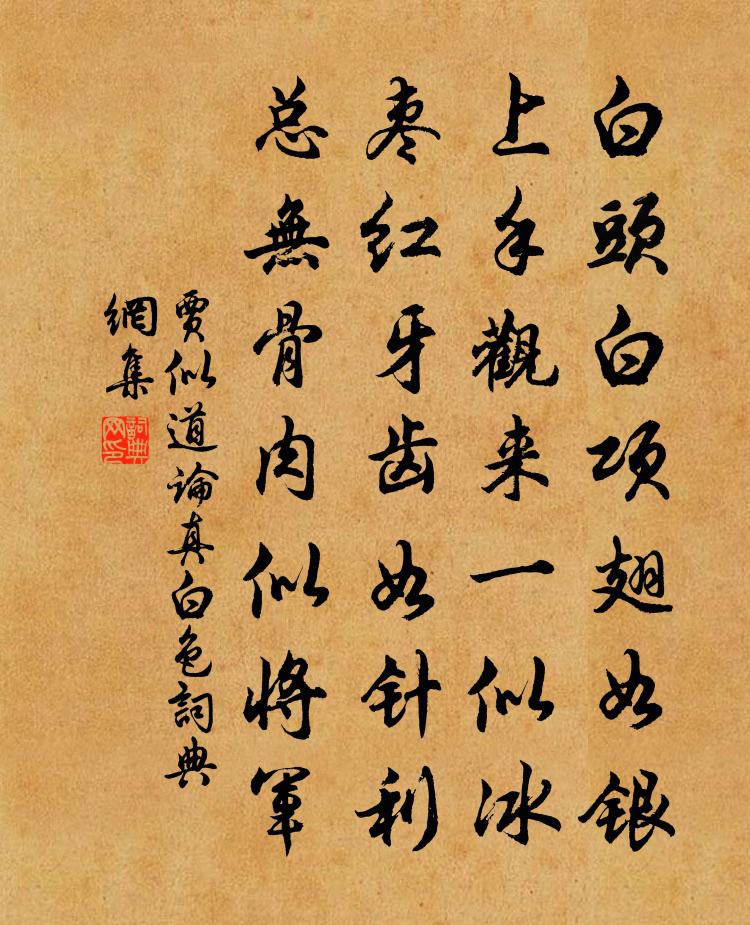 白頭白项翅如银
上手觀来一似冰
枣红牙齿如针利
总無骨肉似将军
賈似道論真白色詞典
網集
詞典
网印